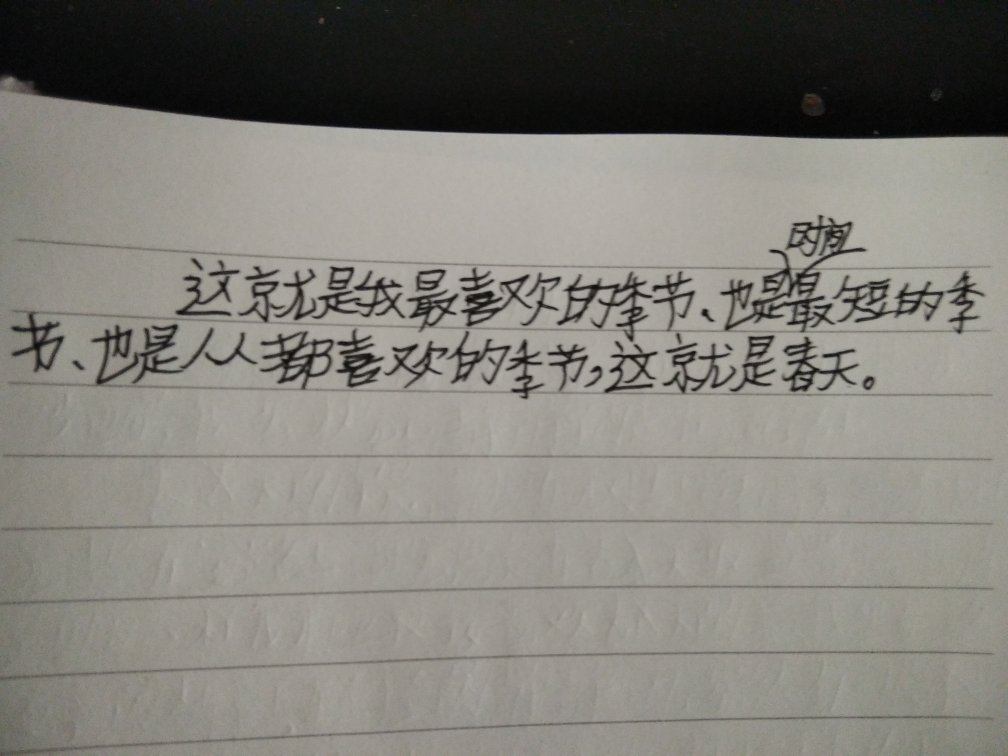 时间
这就是我最喜欢的季节、也是最短的季
节、也是人人都喜欢的季节,这就是春天。